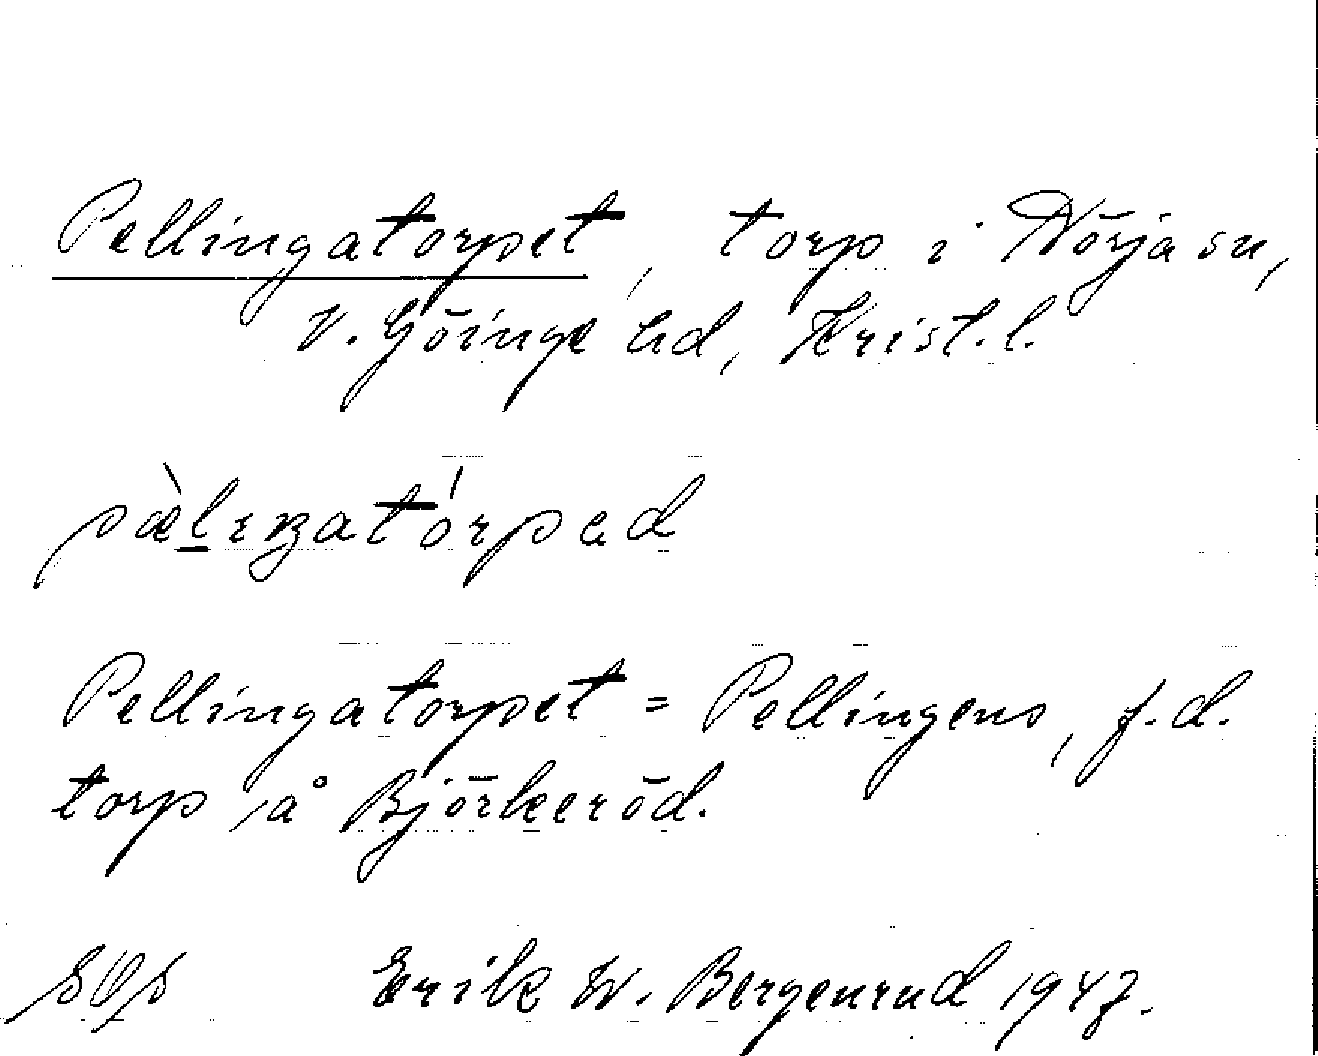 Pellingatorpet, torp i Nörja sn,
V. Göinge hd, Krist. l.
pæ̀lıŋatórpəd
Pellingatorpet = Pellingens, f.d.
torp på Björkeröd.
Erik W. Bergenrud 1947.